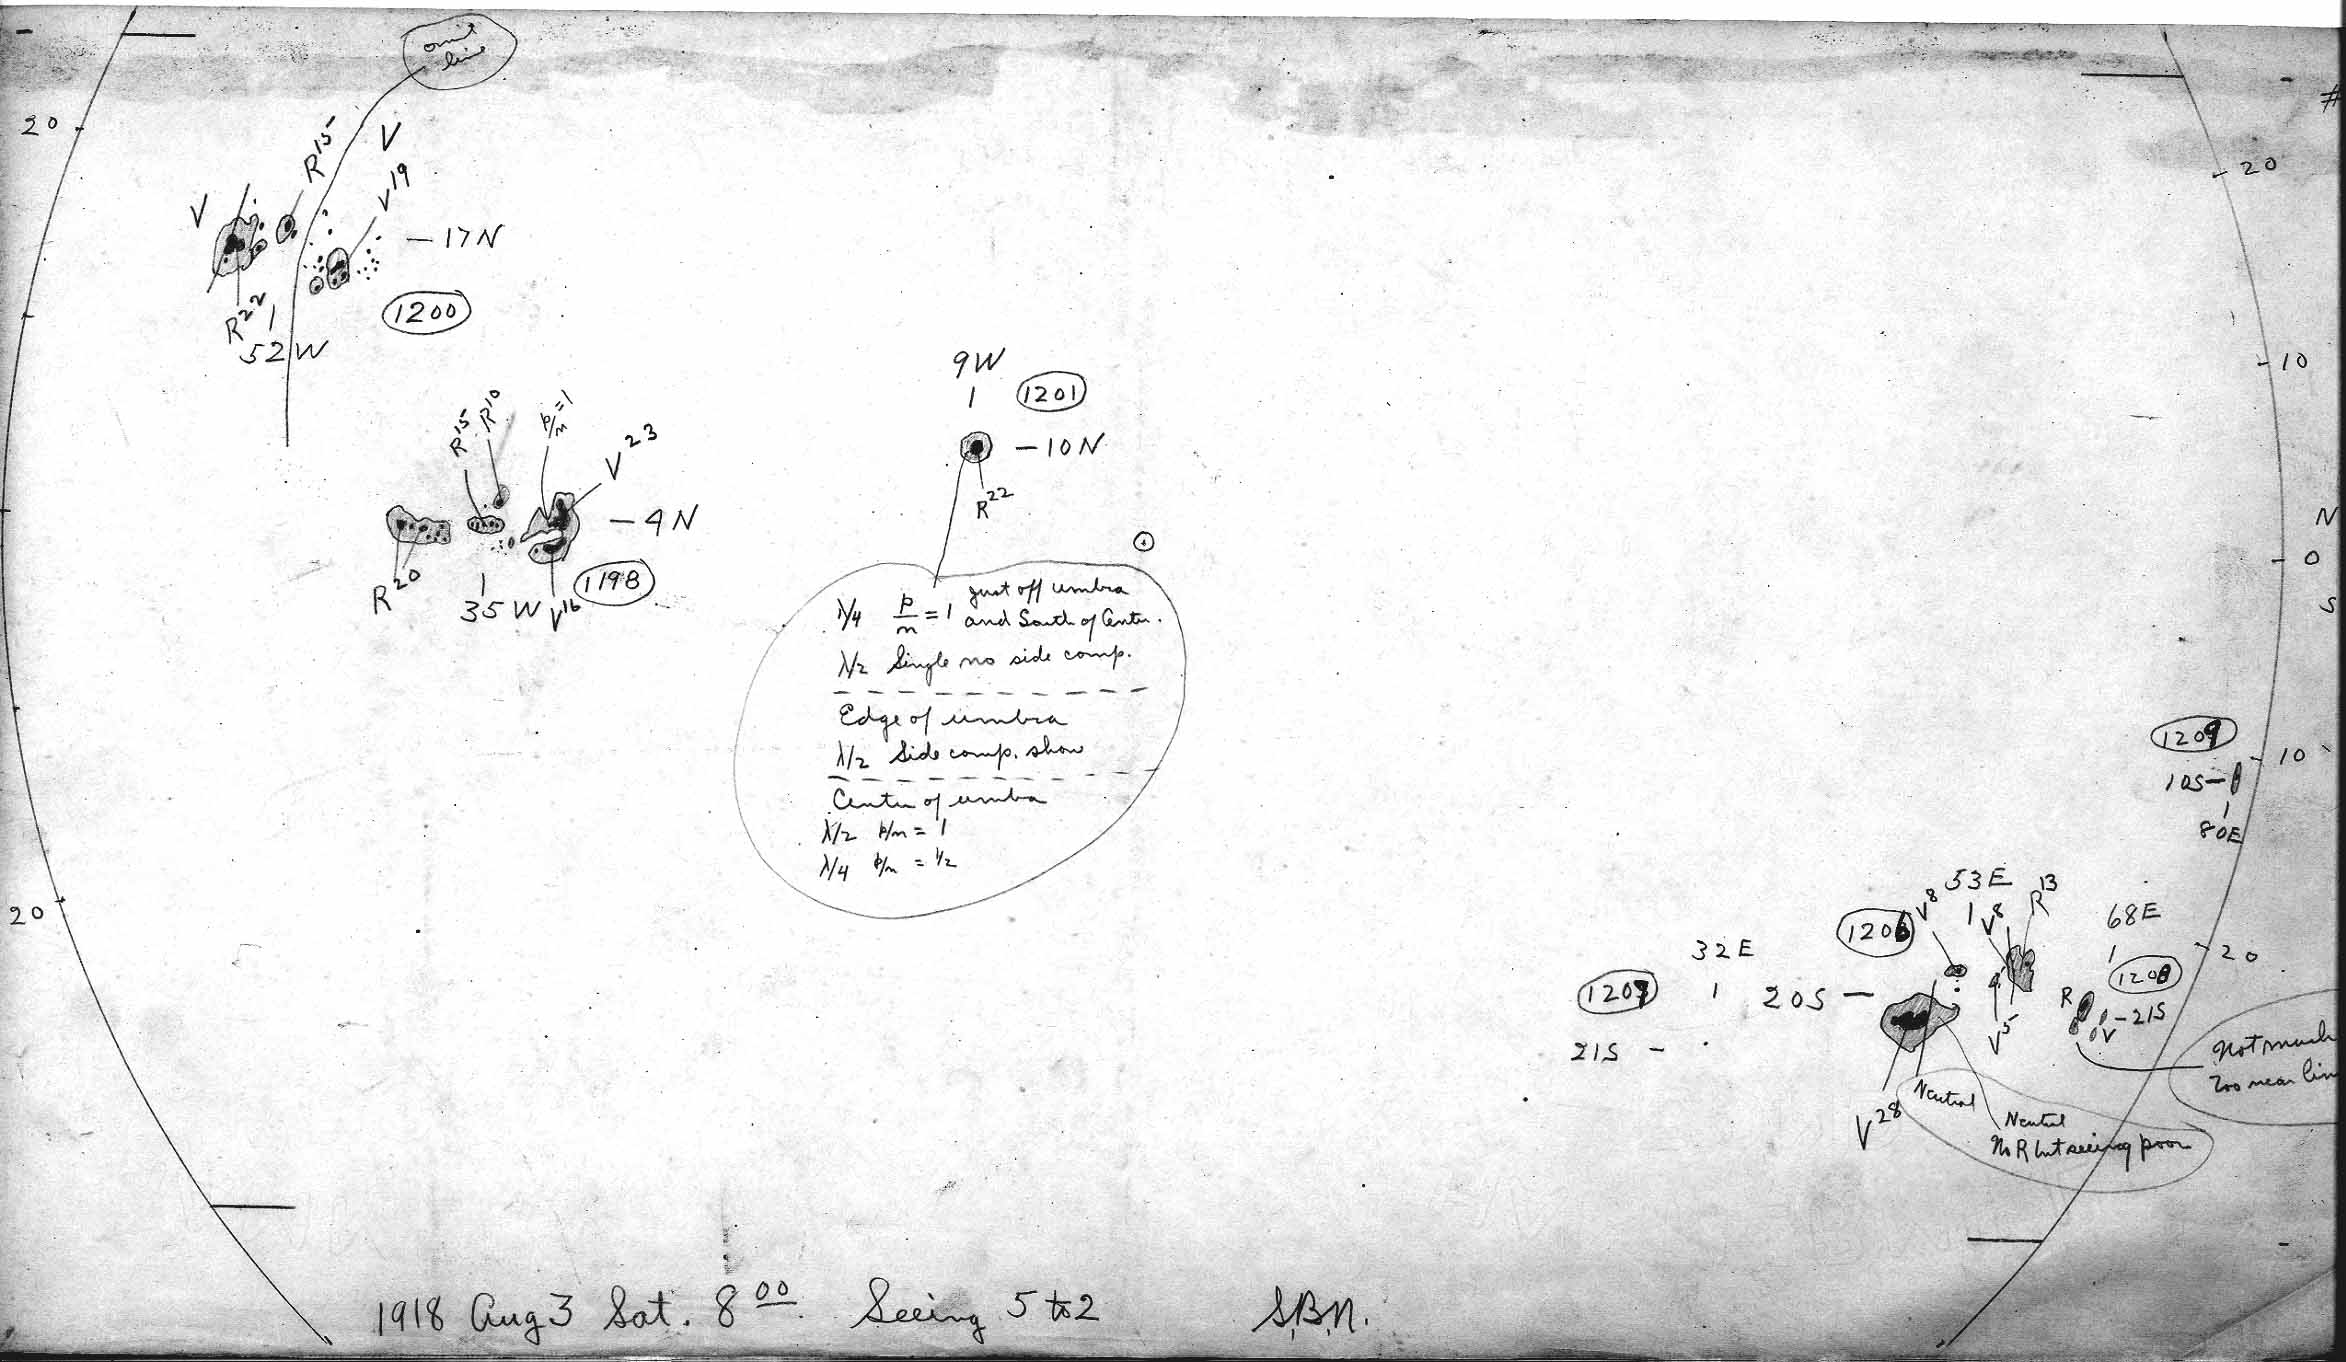 omit
line
20
V
R15
V
V19
-17N
R22
52W
1200
#
20
10
9W
1201
-10N
R22
R15
R10
p/n=1
V23
-4N
R20
35W
V16
1198
N
0
S
λ/4 p/n = 1 just off umbra
and South of Center.
λ/2 Single no side comp.
Edge of umbra
λ/2 Side comp. show
Center of umbra
λ/2 p/n = 1
λ/4 p/n = 1/2
1209
10
10S-
80E
20
53E
V8
V8
R13
1206
68E
32E
20
1207
20S -
1208
R
-21S
V
V5
21S -
Not much
Too near
V28
Neutral
Neutral
No R but seeing poor
1918 Aug 3 Sat. 8 00 Seeing 5 to 2 S.B.N.